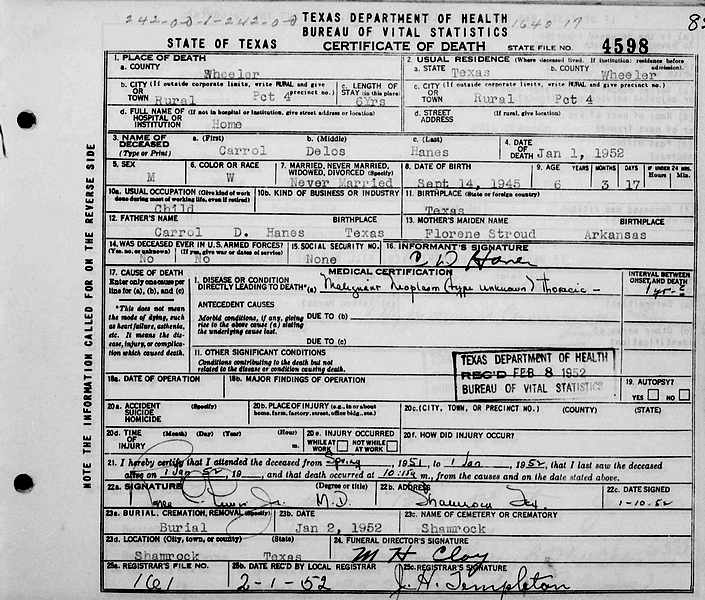 242-00-1-242-0-0 TEXAS DEPARTMENT OF HEALTH 1640 17 82
BUREAU OF VITAL STATISTICS
STATE OF TEXAS CERTIFICATE OF DEATH STATE FILE NO. 4598
NOTE THE INFORMATION CALLED FOR ON THE REVERSE SIDE
1. PLACE OF DEATH
a. COUNTY
Wheeler
2. USUAL RESIDENCE (Where deceased lived. If institution: residence before admission).
a. STATE Texas b. COUNTY Wheeler
b. CITY (If outside corporate limits, write RURAL and give precinct no.)
OR
TOWN Rural Pct 4
c. LENGTH OF STAY (in this place)
6Yrs
c. CITY (If outside corporate limits, write RURAL and give precinct no.)
OR
TOWN Rural Pct 4
d. FULL NAME OF (If not in hospital or institution, give street address or location)
HOSPITAL OR
INSTITUTION Home
d. STREET (If rural, give location)
ADDRESS
3. NAME OF DECEASED (Type or Print)
a. (First) b. (Middle) c. (Last)
Carrol Delos Hanes
4. DATE OF DEATH Jan 1, 1952
5. SEX
M
6. COLOR OR RACE
W
7. MARRIED, NEVER MARRIED, WIDOWED, DIVORCED (Specify)
Never Married
8. DATE OF BIRTH
Sept 14, 1945
9. AGE YEARS MONTHS DAYS IF UNDER 24 HRS. Hours Min.
6 3 17
10a. USUAL OCCUPATION (Give kind of work done during most of working life, even if retired)
Child
10b. KIND OF BUSINESS OR INDUSTRY
11. BIRTHPLACE (State or foreign country)
Texas
12. FATHER'S NAME BIRTHPLACE
Carrol D. Hanes Texas
13. MOTHER'S MAIDEN NAME BIRTHPLACE
Florene Stroud Arkansas
14. WAS DECEASED EVER IN U.S. ARMED FORCES?
(Yes, no, or unknown) (If yes, give war or dates of service)
No No
15. SOCIAL SECURITY NO.
None
16. INFORMANT'S SIGNATURE
C D Hanes
17. CAUSE OF DEATH
Enter only one cause per line for (a), (b), and (c)
*This does not mean the mode of dying, such as heart failure, asthenia, etc. It means the disease, injury, or complication which caused death.
MEDICAL CERTIFICATION
INTERVAL BETWEEN ONSET AND DEATH
I. DISEASE OR CONDITION
DIRECTLY LEADING TO DEATH* (a) Malignant Neoplasm (type unknown) Thoracic - 1 yr - ?
ANTECEDENT CAUSES
Morbid conditions, if any, giving rise to the above cause (a) stating the underlying cause last.
DUE TO (b)
DUE TO (c)
II. OTHER SIGNIFICANT CONDITIONS
Conditions contributing to the death but not related to the disease or condition causing death.
TEXAS DEPARTMENT OF HEALTH
REC'D FEB 8 1952
BUREAU OF VITAL STATISTICS
18a. DATE OF OPERATION
18b. MAJOR FINDINGS OF OPERATION
19. AUTOPSY?
YES NO
20a. ACCIDENT (Specify)
SUICIDE
HOMICIDE
20b. PLACE OF INJURY (e.g., in or about home, farm, factory, street, office bldg., etc.)
20c. (CITY, TOWN, OR PRECINCT NO.) (COUNTY) (STATE)
20d. TIME OF INJURY (Month) (Day) (Year) (Hour) m.
20e. INJURY OCCURRED
WHILE AT WORK NOT WHILE AT WORK
20f. HOW DID INJURY OCCUR?
21. I hereby certify that I attended the deceased from Spring, 1951, to 1 Jan, 1952, that I last saw the deceased
alive on 1 Jan 52, 19, and that death occurred at 10:15 m., from the causes and on the date stated above.
22a. SIGNATURE (Degree or title)
Jr. M.D.
22b. ADDRESS
Shamrock Tex.
22c. DATE SIGNED
1-10-52
23a. BURIAL, CREMATION, REMOVAL (Specify)
Burial
23b. DATE
Jan 2, 1952
23c. NAME OF CEMETERY OR CREMATORY
Shamrock
23d. LOCATION (City, town, or county) (State)
Shamrock Texas
24. FUNERAL DIRECTOR'S SIGNATURE
M H Clay
25a. REGISTRAR'S FILE NO.
161
25b. DATE REC'D BY LOCAL REGISTRAR
2-1-52
25c. REGISTRAR'S SIGNATURE
J. H. Templeton